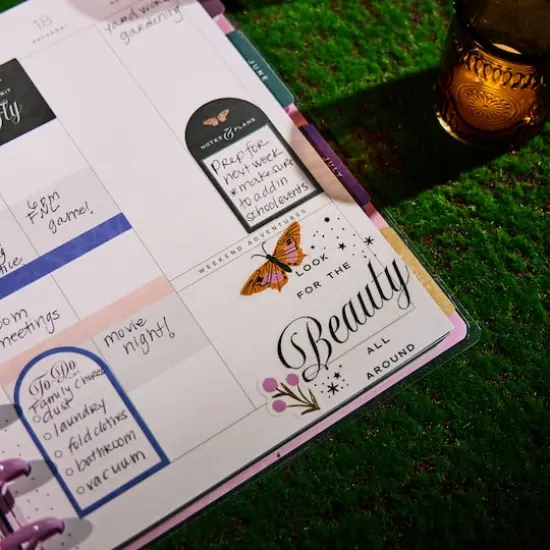 18
SATURDAY
yard work
gardening
fly
JUNE
JULY
NOTES & PLANS
Prep for
next week
* make sure
to add in
school events
6PM
FNL
game!
WEEKEND ADVENTURES
LOOK
FOR THE
Beauty
ALL
AROUND
meetings
movie
night!
To Do
Family Chores
dust
laundry
fold clothes
bathroom
vacuum